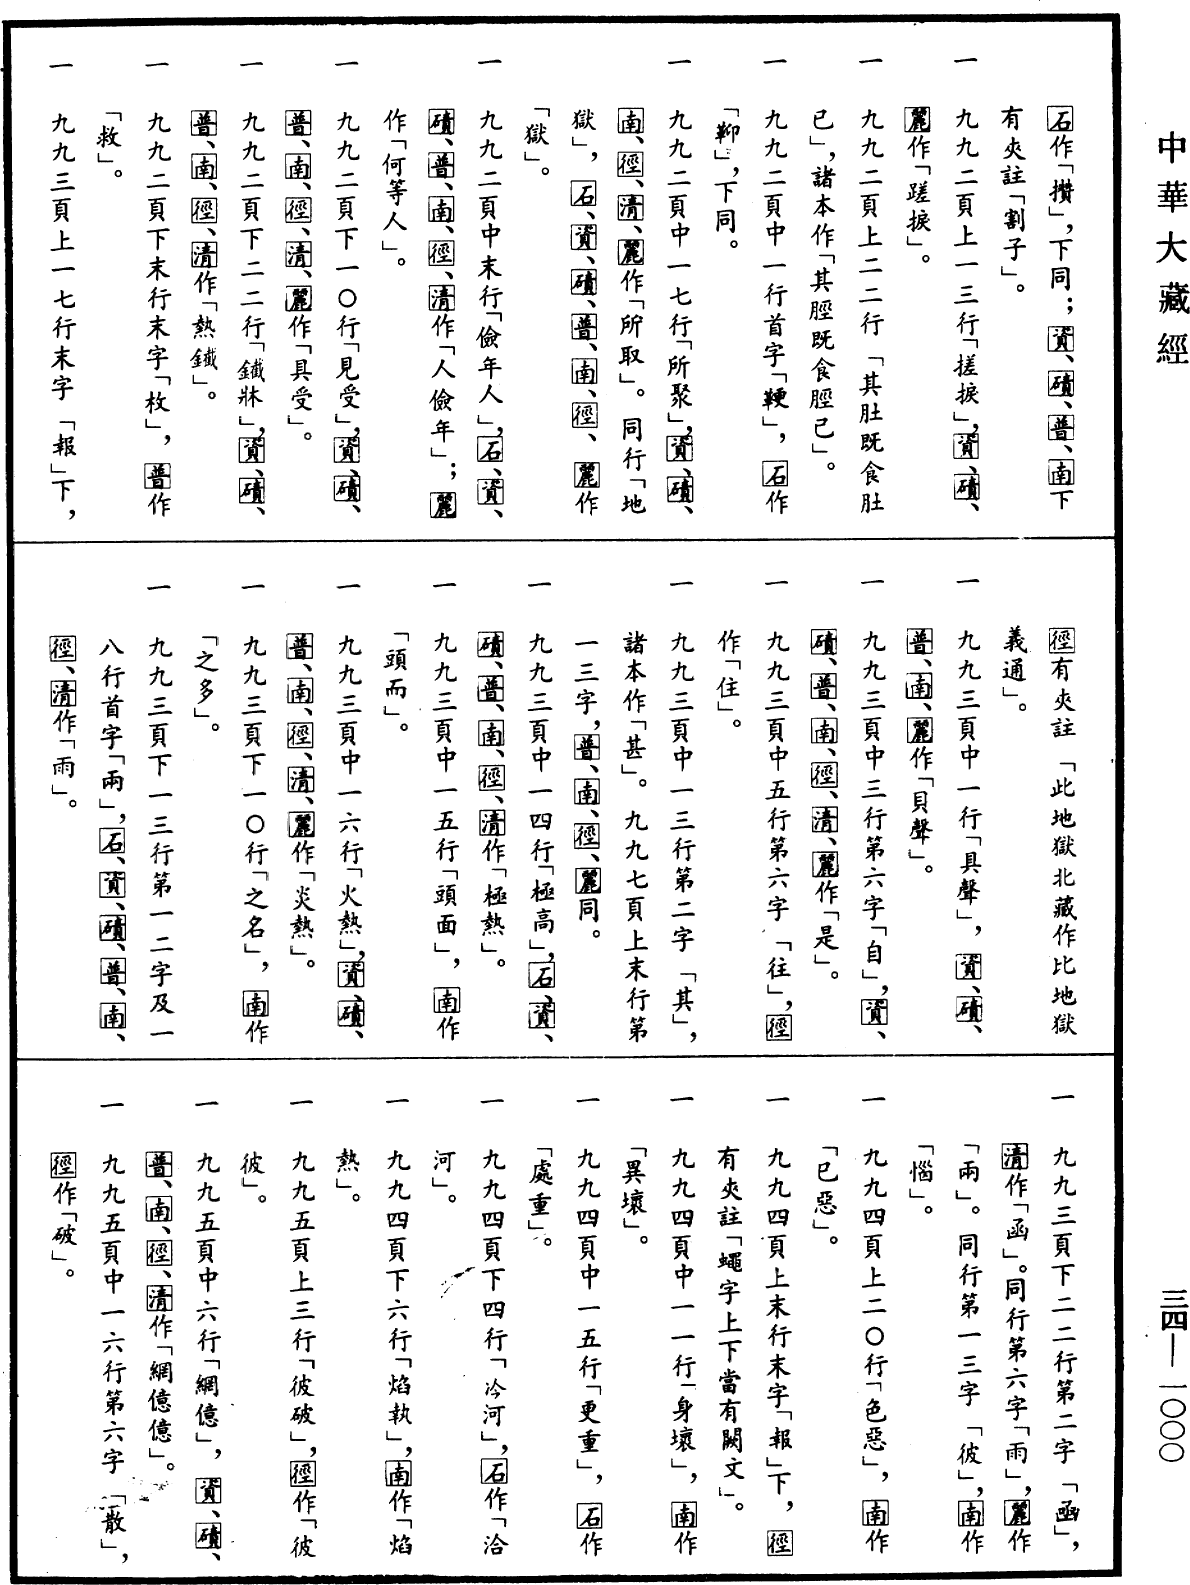 中華大藏經
石作「攢」，下同；資、磧、普、南下
有夾註「割子」。
一　九九二頁上一三行「搓捩」，資、磧、
麗作「蹉捩」。
一　九九二頁上二二行「其肚既食肚
已」，諸本作「其脛既食脛已」。
一　九九二頁中一行首字「鞕」，石作
「䩕」，下同。
一　九九二頁中一七行「所聚」，資、磧、
南、徑、清、麗作「所取」。同行「地
獄」，石、資、磧、普、南、徑、麗作
「獄」。
一　九九二頁中末行「儉年人」，石、資、
磧、普、南、徑、清作「人儉年」；麗
作「何等人」。
一　九九二頁下一〇行「見受」，資、磧、
普、南、徑、清、麗作「具受」。
一　九九二頁下二二行「鐵牀」，資、磧、
普、南、徑、清作「熱鐵」。
一　九九二頁下末行末字「枚」，普作
「救」。
一　九九三頁上一七行末字「報」下，
徑有夾註「此地獄北藏作比地獄
義通」。
一　九九三頁中一行「具聲」，資、磧、
普、南、麗作「貝聲」。
一　九九三頁中三行第六字「自」，資、
磧、普、南、徑、清、麗作「是」。
一　九九三頁中五行第六字「往」，徑
作「住」。
一　九九三頁中一三行第二字「其」，
諸本作「甚」。九九七頁上末行第
一三字，普、南、徑、麗同。
一　九九三頁中一四行「極高」，石、資、
磧、普、南、徑、清作「極熱」。
一　九九三頁中一五行「頭面」，南作
「頭而」。
一　九九三頁中一六行「火熱」，資、磧、
普、南、徑、清、麗作「炎熱」。
一　九九三頁下一〇行「之名」，南作
「之多」。
一　九九三頁下一三行第一二字及一
八行首字「兩」，石、資、磧、普、南、
徑、清作「雨」。
一　九九三頁下二二行第二字「凾」，
清作「函」。同行第六字「雨」，麗作
「兩」。同行第一三字「彼」，南作
「惱」。
一　九九四頁上二〇行「色惡」，南作
「已惡」。
一　九九四頁上末行末字「報」下，徑
有夾註「蠅字上下當有闕文」。
一　九九四頁中一一行「身壞」，南作
「異壞」。
一　九九四頁中一五行「更重」，石作
「處重」。
一　九九四頁下四行「冷河」，石作「洽
河」。
一　九九四頁下六行「焰執」，南作「焰
熱」。
一　九九五頁上三行「彼破」，徑作「彼
彼」。
一　九九五頁中六行「網億」，資、磧、
普、南、徑、清作「網億億」。
一　九九五頁中一六行第六字「散」，
徑作「破」。
三四—一〇〇〇